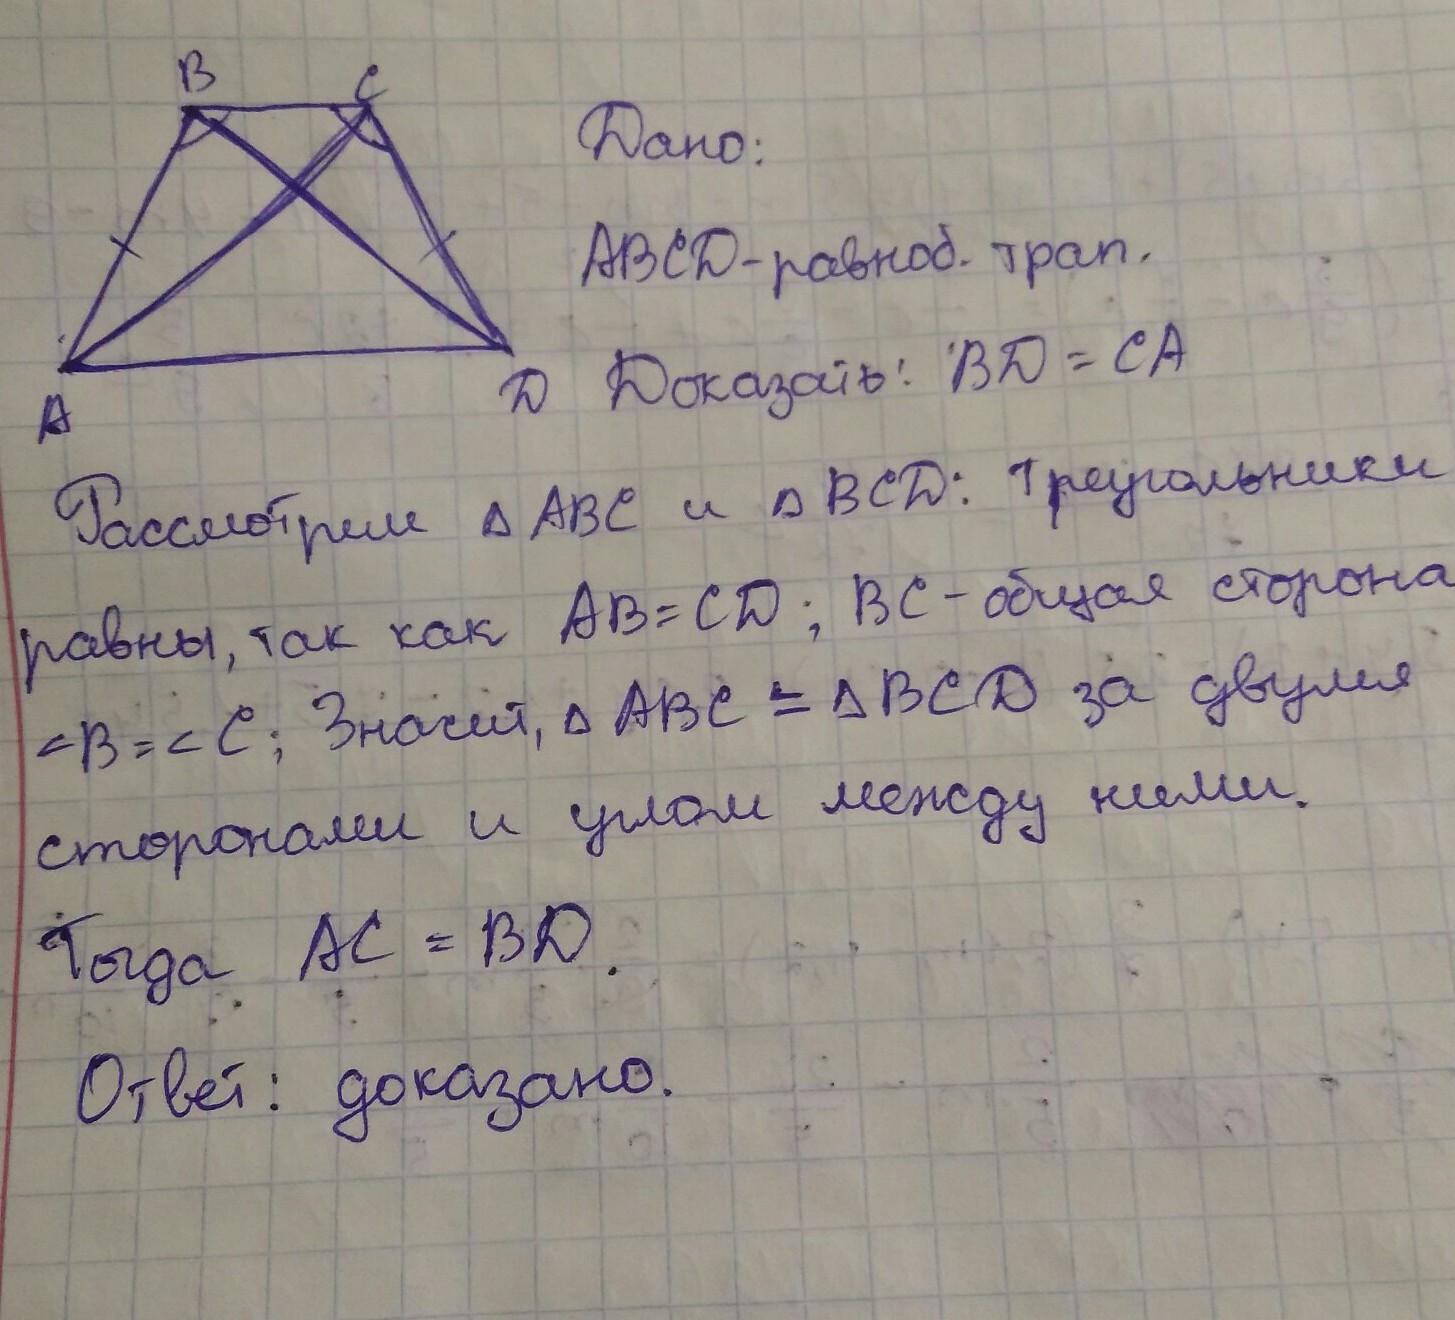 B C
Дано:
ABCD-равноб. трап.
A D Доказать: BD = CA
Рассмотрим △ ABC и △ BCD: Треугольники
равны, так как AB = CD; BC - общая сторона
∠B = ∠C; Значит, △ ABC = △ BCD за двумя
сторонами и углом между ними.
Тогда AC = BD.
Ответ: доказано.